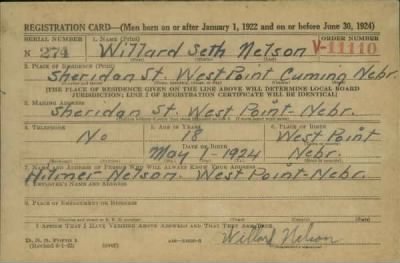 REGISTRATION CARD—(Men born on or after January 1, 1922 and on or before June 30, 1924)
SERIAL NUMBER 1. NAME (Print)
N 274 Willard Seth Nelson V-11110
2. PLACE OF RESIDENCE (Print)
Sheridan St. West Point Cuming Nebr.
[THE PLACE OF RESIDENCE GIVEN ON THE LINE ABOVE WILL DETERMINE LOCAL BOARD
JURISDICTION; LINE 2 OF REGISTRATION CERTIFICATE WILL BE IDENTICAL]
3. MAILING ADDRESS
Sheridan St. West Point-Nebr.
4. TELEPHONE 5. AGE IN YEARS 6. PLACE OF BIRTH
No 18 West Point
DATE OF BIRTH
May 1-1924 Nebr.
7. NAME AND ADDRESS OF PERSON WHO WILL ALWAYS KNOW YOUR ADDRESS
Hilmer Nelson. West Point-Nebr.
8. EMPLOYER'S NAME AND ADDRESS
9. PLACE OF EMPLOYMENT OR BUSINESS
I AFFIRM THAT I HAVE VERIFIED ABOVE ANSWERS AND THAT THEY ARE TRUE.
D. S. S. Form 1
Willard Nelson